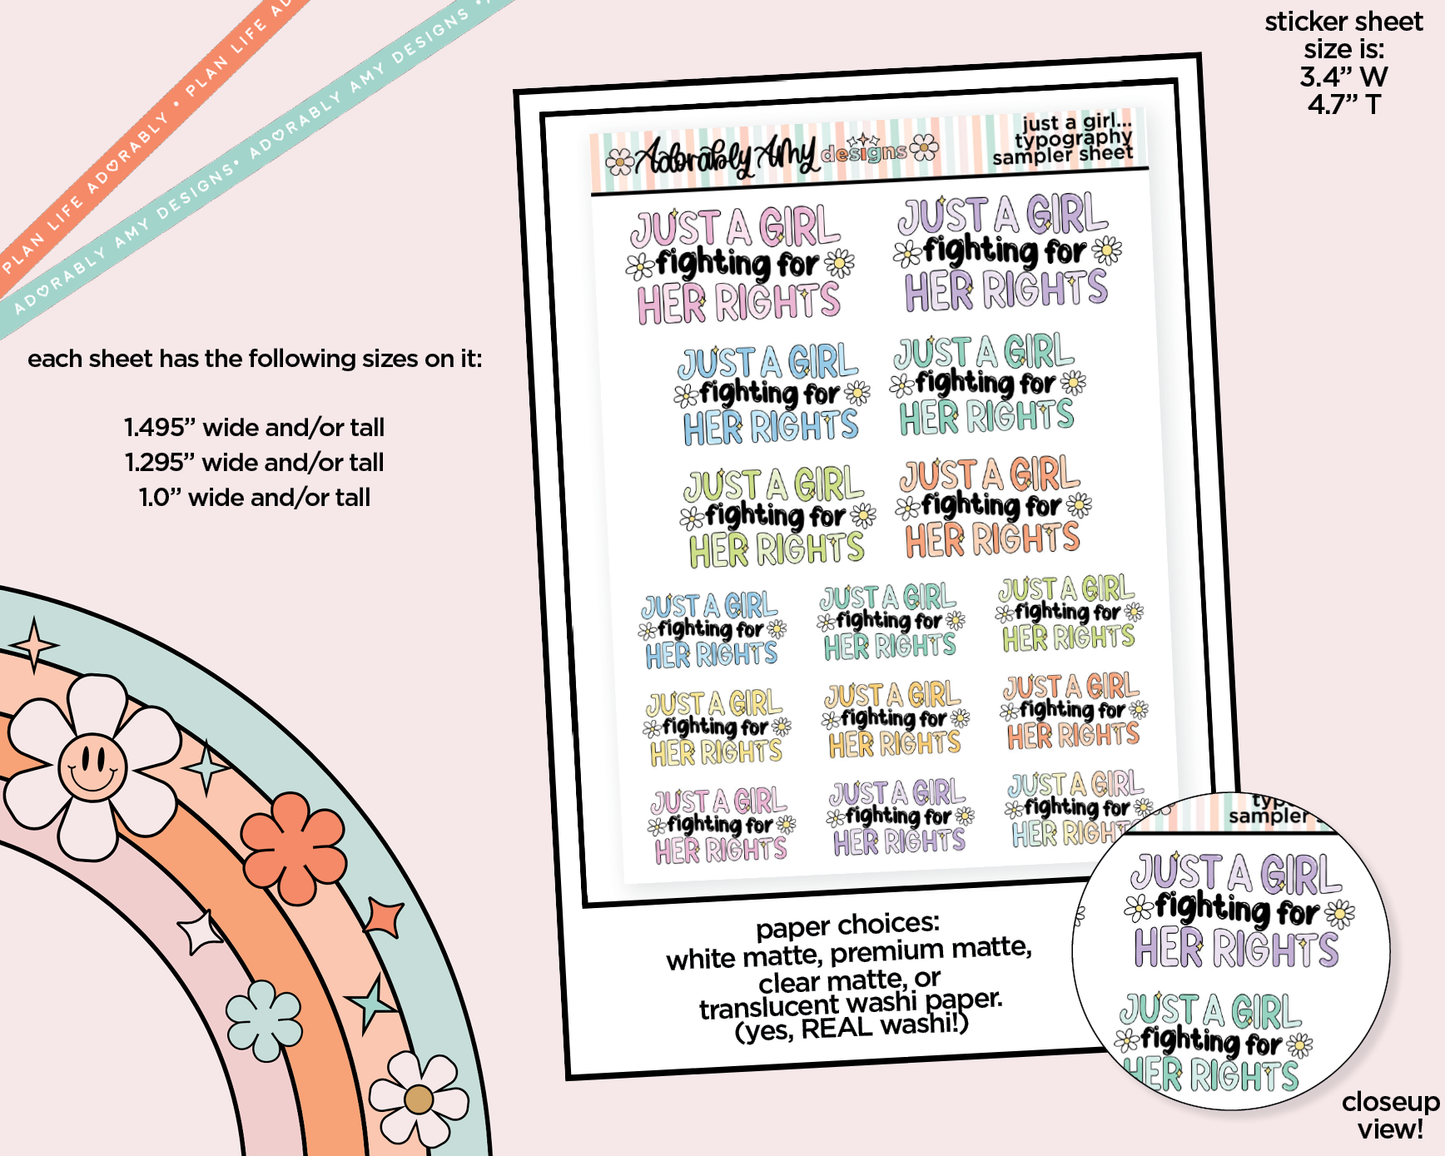 PLAN LIFE ADORABLY • PLAN LIFE AD
ADORABLY AMY DESIGNS • ADORABLY AMY DESIGNS •
sticker sheet
size is:
3.4” W
4.7” T
each sheet has the following sizes on it:
1.495” wide and/or tall
1.295” wide and/or tall
1.0” wide and/or tall
Adorably Amy designs
just a girl...
typography
sampler sheet
JUST A GIRL
fighting for
HER RIGHTS
JUST A GIRL
fighting for
HER RIGHTS
JUST A GIRL
fighting for
HER RIGHTS
JUST A GIRL
fighting for
HER RIGHTS
JUST A GIRL
fighting for
HER RIGHTS
JUST A GIRL
fighting for
HER RIGHTS
JUST A GIRL
fighting for
HER RIGHTS
JUST A GIRL
fighting for
HER RIGHTS
JUST A GIRL
fighting for
HER RIGHTS
JUST A GIRL
fighting for
HER RIGHTS
JUST A GIRL
fighting for
HER RIGHTS
JUST A GIRL
fighting for
HER RIGHTS
JUST A GIRL
fighting for
HER RIGHTS
JUST A GIRL
fighting for
HER RIGHTS
JUST A GIRL
fighting for
HER RIGHTS
paper choices:
white matte, premium matte,
clear matte, or
translucent washi paper.
(yes, REAL washi!)
sampler
JUST A GIRL
fighting for
HER RIGHTS
JUST A GIRL
fighting for
HER RIGHTS
closeup
view!